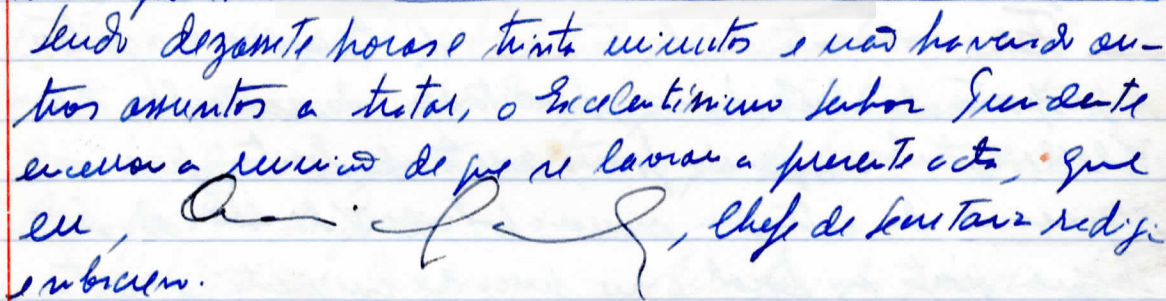 Sendo dezassete horas e trinta minutos e não havendo ou-
tros assuntos a tratar, o Excelentíssimo Senhor Presidente
encerrou a reunião de que se lavrou a presente acta, que
eu, , Chefe de Secretaria redigi
e subscrevo.